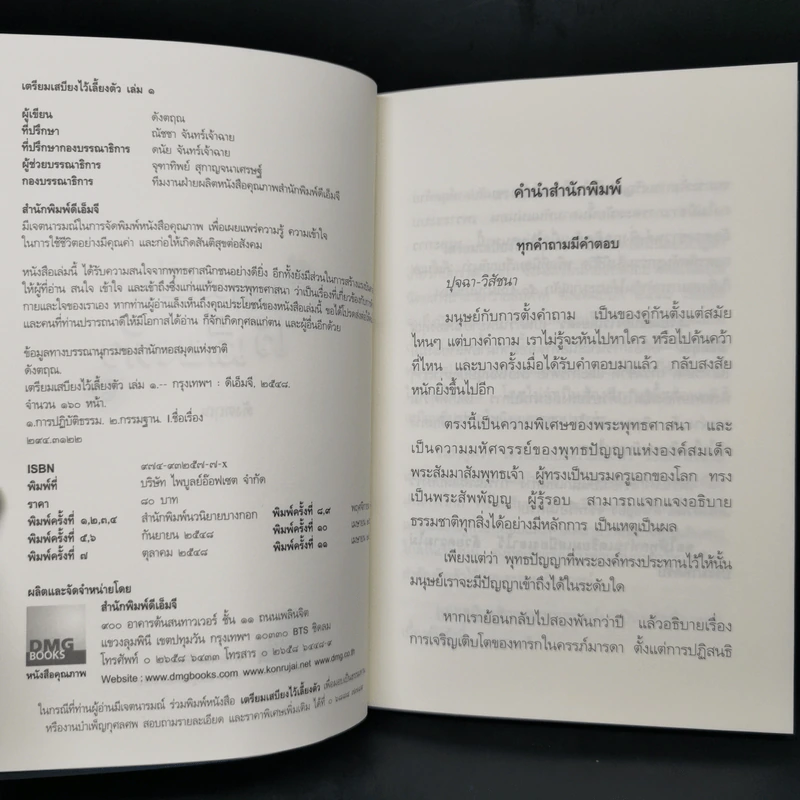 เตรียมเสบียงไว้เลี้ยงตัว เล่ม ๑
ผู้เขียน ดังตฤณ
ที่ปรึกษา ณัชชา จันทร์เจ้าฉาย
ที่ปรึกษากองบรรณาธิการ ดนัย จันทร์เจ้าฉาย
ผู้ช่วยบรรณาธิการ จุฑาทิพย์ สุกาญจนาเศรษฐ์
กองบรรณาธิการ ทีมงานฝ่ายผลิตหนังสือคุณภาพสำนักพิมพ์ดีเอ็มจี
สำนักพิมพ์ดีเอ็มจี
มีเจตนารมณ์ในการจัดพิมพ์หนังสือคุณภาพ เพื่อเผยแพร่ความรู้ ความเข้าใจ
ในการใช้ชีวิตอย่างมีคุณค่า และก่อให้เกิดสันติสุขต่อสังคม
หนังสือเล่มนี้ ได้รับความสนใจจากพุทธศาสนิกชนอย่างดียิ่ง อีกทั้งยังมีส่วนในการสร้างแรงบันดาล
ให้ผู้ที่อ่าน สนใจ เข้าใจ และเข้าถึงซึ่งแก่นแท้ของพระพุทธศาสนา ว่าเป็นเรื่องที่เกี่ยวข้องกับ
กายและใจของเราเอง หากท่านผู้อ่านเล็งเห็นถึงคุณประโยชน์ของหนังสือเล่มนี้ ขอได้โปรดส่งต่อให้
และคนที่ท่านปรารถนาดีให้มีโอกาสได้อ่าน ก็จักเกิดกุศลแก่ตน และผู้อื่นอีกด้วย
ข้อมูลทางบรรณานุกรมของสำนักหอสมุดแห่งชาติ
ดังตฤณ.
เตรียมเสบียงไว้เลี้ยงตัว เล่ม ๑.-- กรุงเทพฯ : ดีเอ็มจี, ๒๕๔๘.
จำนวน ๑๖๐ หน้า.
๑.การปฏิบัติธรรม. ๒.กรรมฐาน. I.ชื่อเรื่อง
๒๙๔.๓๑๒๒
ISBN ๙๗๔-๙๓๒๕๗-๗-x
พิมพ์ที่ บริษัท ไพบูลย์อ๊อฟเซต จำกัด
ราคา ๘๐ บาท
พิมพ์ครั้งที่ ๑,๒,๓,๔ สำนักพิมพ์นวนิยายบางกอก พิมพ์ครั้งที่ ๘,๙
พิมพ์ครั้งที่ ๕,๖ กันยายน ๒๕๔๘ พิมพ์ครั้งที่ ๑๐
พิมพ์ครั้งที่ ๗ ตุลาคม ๒๕๔๘ พิมพ์ครั้งที่ ๑๑
ผลิตและจัดจำหน่ายโดย
สำนักพิมพ์ดีเอ็มจี
๙๐๐ อาคารต้นสนทาวเวอร์ ชั้น ๑๑ ถนนเพลินจิต
แขวงลุมพินี เขตปทุมวัน กรุงเทพฯ ๑๐๓๓๐ BTS ชิดลม
โทรศัพท์ ๐ ๒๖๕๘ ๖๔๓๓ โทรสาร ๐ ๒๖๕๘ ๖๔๔๘-๙
Website : www.dmgbooks.com www.konrujai.net www.dmg.co.th
DMG
BOOKS
หนังสือคุณภาพ
ในกรณีที่ท่านผู้อ่านมีเจตนารมณ์ ร่วมพิมพ์หนังสือ เตรียมเสบียงไว้เลี้ยงตัว เพื่อมอบเป็นธรรมทาน
หรืองานบำเพ็ญกุศลศพ สอบถามรายละเอียด และราคาพิเศษเพิ่มเติม ได้ที่
คำนำสำนักพิมพ์
ทุกคำถามมีคำตอบ
ปุจฉา-วิสัชนา
มนุษย์กับการตั้งคำถาม เป็นของคู่กันตั้งแต่สมัย
ไหนๆ แต่บางคำถาม เราไม่รู้จะหันไปหาใคร หรือไปค้นคว้า
ที่ไหน และบางครั้งเมื่อได้รับคำตอบมาแล้ว กลับสงสัย
หนักยิ่งขึ้นไปอีก
ตรงนี้เป็นความพิเศษของพระพุทธศาสนา และ
เป็นความมหัศจรรย์ของพุทธปัญญาแห่งองค์สมเด็จ
พระสัมมาสัมพุทธเจ้า ผู้ทรงเป็นบรมครูเอกของโลก ทรง
เป็นพระสัพพัญญู ผู้รู้รอบ สามารถแจกแจงอธิบาย
ธรรมชาติทุกสิ่งได้อย่างมีหลักการ เป็นเหตุเป็นผล
เพียงแต่ว่า พุทธปัญญาที่พระองค์ทรงประทานไว้ให้นั้น
มนุษย์เราจะมีปัญญาเข้าถึงได้ในระดับใด
หากเราย้อนกลับไปสองพันกว่าปี แล้วอธิบายเรื่อง
การเจริญเติบโตของทารกในครรภ์มารดา ตั้งแต่การปฏิสนธิ